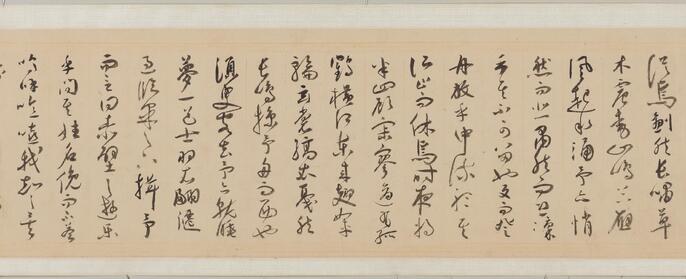 從焉劃然長嘯草
木震動山鳴谷應
風起水涌予亦悄
然而悲肅然而恐凜
乎其不可留也反而登
舟放乎中流聽其
所止而休焉時夜將
半四顧寂寥適有孤
鶴橫江東來翅如車
輪玄裳縞衣戛然
長鳴掠予舟而西也
須臾客去予亦就睡
夢一道士羽衣翩僊
過臨皋之下揖予
而言曰赤壁之遊樂
乎問其姓名俛而不答
嗚呼噫嘻我知之矣